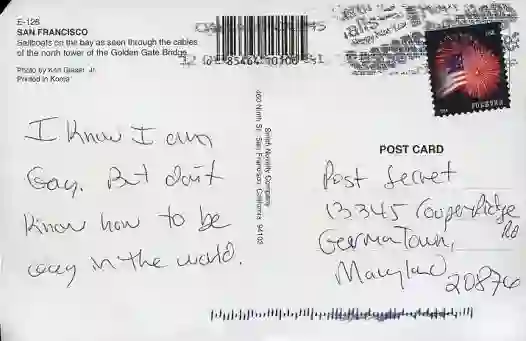 E-126
SAN FRANCISCO
Sailboats on the bay as seen through the cables
of the north tower of the Golden Gate Bridge.
Photo by Ken Glaser, Jr.
Printed in Korea
FOREVER
I know I am
Gay. But don't
know how to be
gay in the world.
Smith Novelty Company
460 Ninth St. San Francisco, California 94103
POST CARD
Post Secret
13345 Copper Ridge
Rd
Germantown,
Maryland
20876